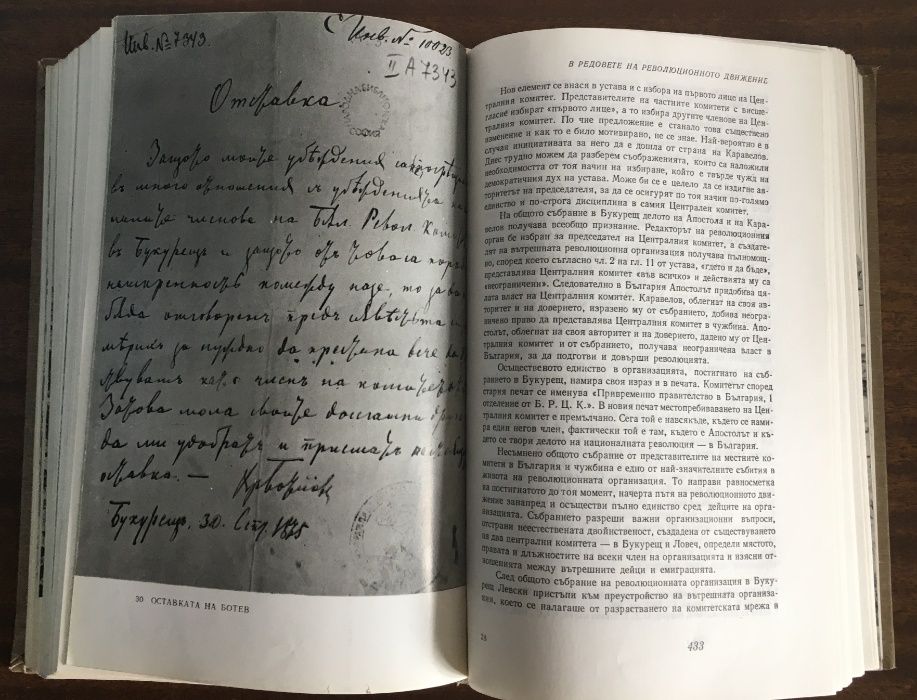 Инв. № 7343.
С Инв. № 10023
II А 7343
Отставка
Защото моите убеждения
въ много отношения съ убежденията на
членове на Бъл. Револ. Комитетъ
въ Букурещ и защото отъ това
неискренность помежду нас, то за да
бѫда отговоренъ предъ
за нужно да престана вече да
като членъ на комитетътъ.
Затова моля своите досегашни
да ми удобрятъ и приематъ
оставка. —
Хр Ботйов
Букурещ. 30. Сеп. 1875
30 ОСТАВКАТА НА БОТЕВ
В РЕДОВЕТЕ НА РЕВОЛЮЦИОННОТО ДВИЖЕНИЕ
Нов елемент се внася в устава и с избора на първото лице на Цен-
тралния комитет. Представителите на частните комитети с висше-
гласие избират «първото лице», а то избира другите членове на Цен-
тралния комитет. По чие предложение е станало това съществено
изменение и как то е било мотивирано, не се знае. Най-вероятно е в
случая инициативата за него да е дошла от страна на Каравелов.
Днес трудно можем да разберем съображенията, които са наложили
необходимостта от тоя начин на избиране, който е твърде чужд на
демократичния дух на устава. Може би се е целело да се издигне ав-
торитетът на председателя, за да се осигури по тоя начин по-голямо
единство и по-строга дисциплина в самия Централен комитет.
На общото събрание в Букурещ делото на Апостола и на Кара-
велов получава всеобщо признание. Редакторът на революционния
орган бе избран за председател на Централния комитет, а създате-
лят на вътрешната революционна организация получава пълномощ-
но, според което съгласно чл. 2 на гл. 11 от устава, «гдето и да бъде»,
представлява Централния комитет «във всичко» и действията му са
«неограничени». Следователно в България Апостолът придобива ця-
лата власт на Централния комитет. Каравелов, облегнат на своя ав-
торитет и на доверието, изразено му от събранието, добива неогра-
ничено право да представлява Централния комитет в чужбина. Апо-
столът, облегнат на своя авторитет и на доверието, дадено му от Цен-
тралния комитет и от събранието, получава неограничена власт в
България, за да подготви и довърши революцията.
Осъщественото единство в организацията, постигнато на съб-
ранието в Букурещ, намира своя израз и в печата. Комитетът според
стария печат се именува «Привременно правителство в България, I
отделение от Б. Р. Ц. К.». В новия печат местопребиваването на Цен-
тралния комитет е премълчано. Сега той е навсякъде, където се нами-
ра един негов член, фактически той е там, където е Апостолът и къ-
дето се твори делото на националната революция — в България.
Несъмнено общото събрание от представителите на местните ко-
митети в България и чужбина е едно от най-значителните събития в
живота на революционната организация. То направи равносметка
на постигнатото до тоя момент, начерта пътя на революционното дви-
жение занапред и осъществи пълно единство сред дейците на орга-
низацията. Събранието разреши важни организационни въпроси,
отстрани неестествената двойственост, създадена от съществуването
на два централни комитета — в Букурещ и Ловеч, определи мястото,
правата и длъжностите на всеки член на организацията и взаимо-
отношенията между вътрешните дейци и емиграцията.
След общото събрание на революционната организация в Буку-
рещ Левски пристъпи към преустройство на вътрешната организа-
ция, което се налагаше от разрастването на комитетската мрежа и
28
433